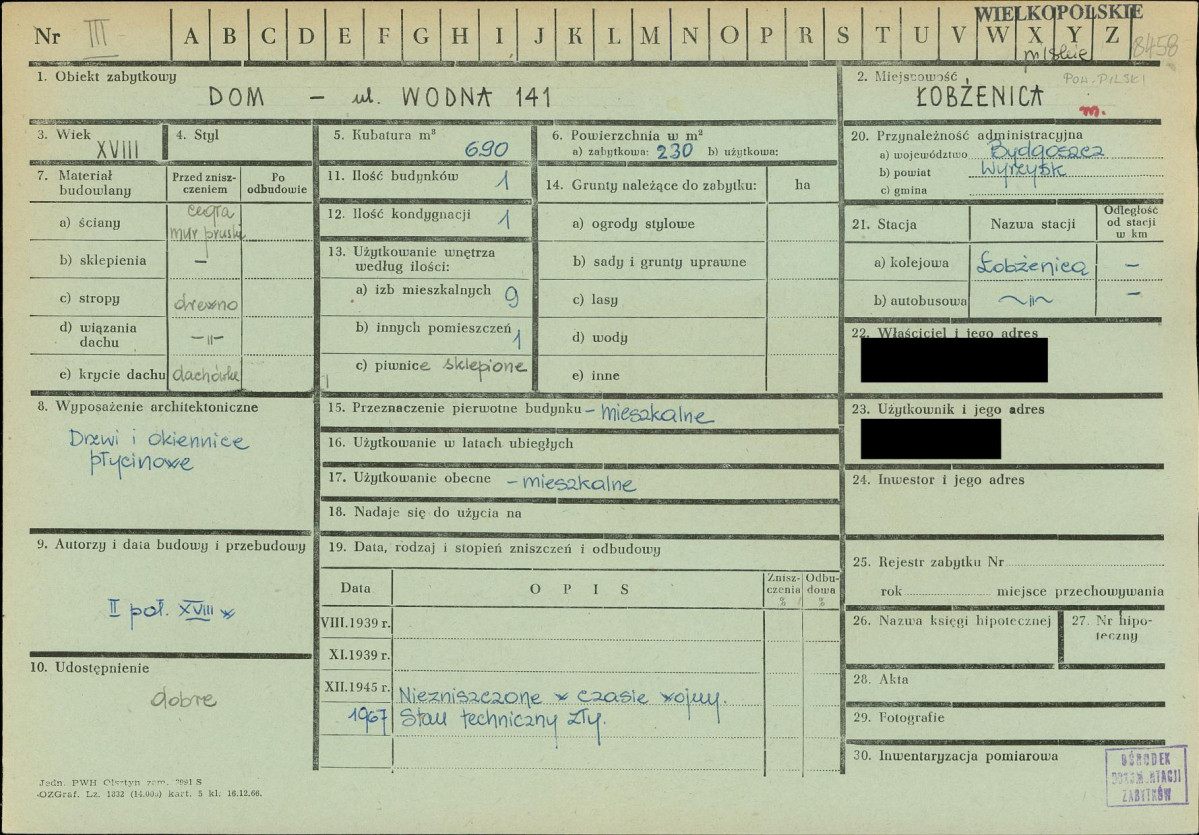 WIELKOPOLSKIE
Nr III A B C D E F G H I J K L M N O P R S T U V W X Y Z 8458
pilskie
1. Obiekt zabytkowy
DOM – ul. WODNA 141
2. Miejscowość
POW. PILSKI
ŁOBŻENICA
m.
3. Wiek
XVIII
4. Styl
5. Kubatura m³
690
6. Powierzchnia w m²
a) zabytkowa: 230 b) użytkowa:
7. Materiał budowlany
Przed zniszczeniem
Po odbudowie
a) ściany
cegła
mur pruski
b) sklepienia –
c) stropy drewno
d) wiązania dachu –"–
e) krycie dachu dachówka
11. Ilość budynków 1
12. Ilość kondygnacji 1
13. Użytkowanie wnętrza
według ilości:
a) izb mieszkalnych 9
b) innych pomieszczeń 1
c) piwnice sklepione
14. Grunty należące do zabytku: ha
a) ogrody stylowe
b) sady i grunty uprawne
c) lasy
d) wody
e) inne
20. Przynależność administracyjna
a) województwo Bydgoszcz
b) powiat Wyrzysk
c) gmina
21. Stacja
Nazwa stacji
Odległość od stacji w km
a) kolejowa Łobżenica –
b) autobusowa ~"~ –
22. Właściciel i jego adres
23. Użytkownik i jego adres
24. Inwestor i jego adres
8. Wyposażenie architektoniczne
Drzwi i okiennice
płycinowe
15. Przeznaczenie pierwotne budynku – mieszkalne
16. Użytkowanie w latach ubiegłych
17. Użytkowanie obecne – mieszkalne
18. Nadaje się do użycia na
9. Autorzy i data budowy i przebudowy
II poł. XVIII w
10. Udostępnienie
dobre
19. Data, rodzaj i stopień zniszczeń i odbudowy
Data
O P I S
Zniszczenia %
Odbudowa %
VIII.1939 r.
XI.1939 r.
XII.1945 r. Niezniszczone w czasie wojny.
1967 Stan techniczny zły.
25. Rejestr zabytku Nr
rok miejsce przechowywania
26. Nazwa księgi hipotecznej
27. Nr hipoteczny
28. Akta
29. Fotografie
30. Inwentaryzacja pomiarowa
OŚRODEK
DOKUMENTACJI
ZABYTKÓW
Jedn. PWH Olsztyn zam. 2991 S
OZGraf. Lz. 1832 (14.000) kart. 5 kl. 16.12.66.